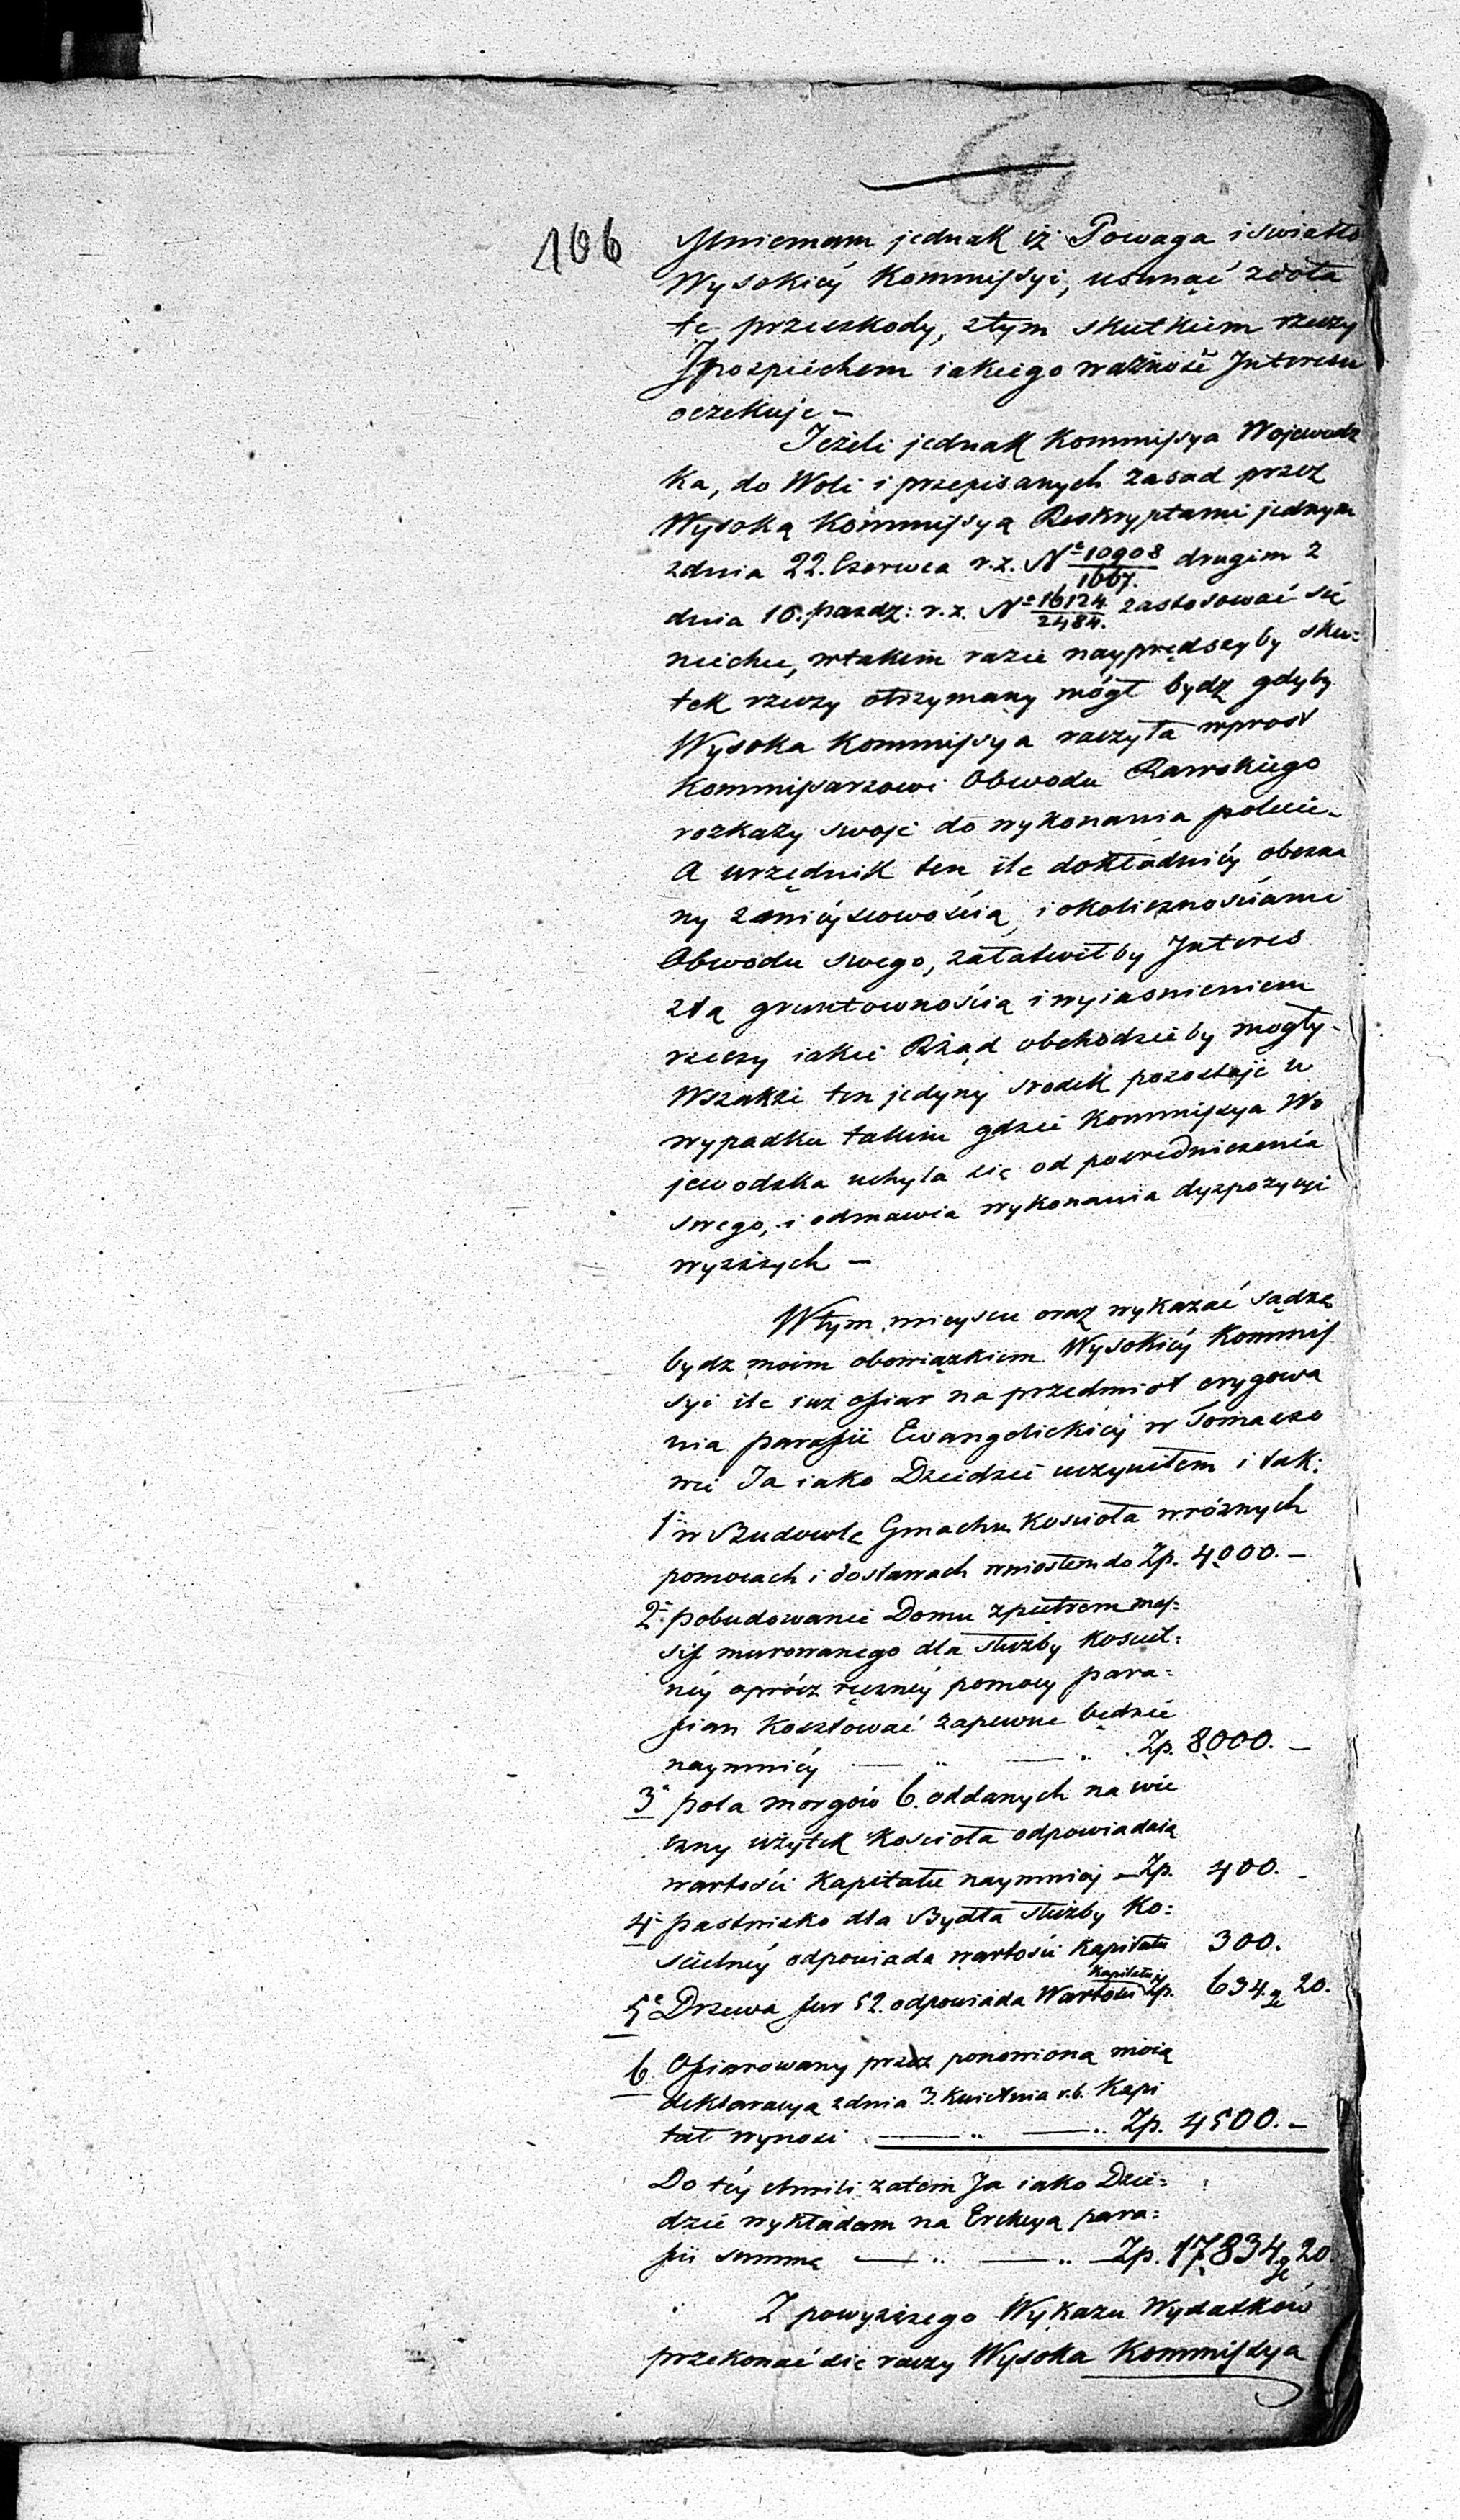 106
Mniemam jednak iż Powaga i swiatło
Wysokiéy Kommissyi, usunąć zdoła
te przeszkody, ztym skutkiem rzeczy
I pospiéchem iakiego ważność Interesu
oczekuje –
Jeżeli jednak Kommissya Wojewodz
ka, do Woli i przepisanych zasad przez
Wysoką Kommissyą Reskryptami jednym
zdnia 22. Czerwca r.z. No 10908/1667. drugim z
dnia 16. pazdz: r.z. No 16124/2484. zastosować się
niechce, wtakim razie nayprędszy by sku=
tek rzeczy otrzymany mógł bydz gdyby
Wysoka Kommissya raczyła wprost
Kommissarzowi Obwodu Rawskiego
rozkazy swoje do wykonania polecić –
A urzędnik ten ile dokładniéy obezna
ny zmiéyscowością, i okolicznościami
Obwodu swego, załatwił by Interes
ztą gruntownością i wyiasnieniem
rzeczy iakie Rząd obchodzić by mogły –
Wszakże ten jedyny srodek pozostaje w
wypadku takim gdzie Kommissya Wo
jewodzka uchyla się od posredniczenia
swego, i odmawia wykonania dyspozycyi
wyższych –
Wtym mieyscu oraz wykazać sądzę
bydz moim obowiązkiem Wysokiéy Kommis
syi ile iuz ofiar na przedmiot erygowa
nia parafii Ewangelickiéy w Tomaszo
wie Ja iako Dziedzic uczyniłem i tak:
1o w Budowlę Gmachu Kościoła wróżnych
pomocach i dostawach wniosłem do Zp. 4,000. –
2o pobudowanie Domu zpiętrem mas=
sif murowanego dla służby Kosciel=
néy oprócz ręcznéy pomocy para=
fian Kosztować zapewne będzie
naymniéy — „ — „ Zp. 8,000. –
3o pola morgów 6. oddanych na wie
czny użytek Kościoła odpowiadaią
wartości Kapitału naymniéy – Zp. 400. –
4o pastwisko dla Bydła służby Ko=
scielnéy odpowiada wartości Kapitału 300.
5o Drzewa fur 52. odpowiada Wartości Kapitału Zp. 634. gr 20.
6 Ofiarowany przez ponowioną moią
deklaracyą zdnia 3. Kwietnia r.b. Kapi
tał wynosi — „ — „ Zp. 4500. –
Do téy chwili zatem Ja iako Dzie=
dzic wykładam na Erekcyą para=
fii summę — „ — „ – Zp. 17,834. gr 20.
Z powyższego Wykazu Wydatków
przekonać się raczy Wysoka Kommissya